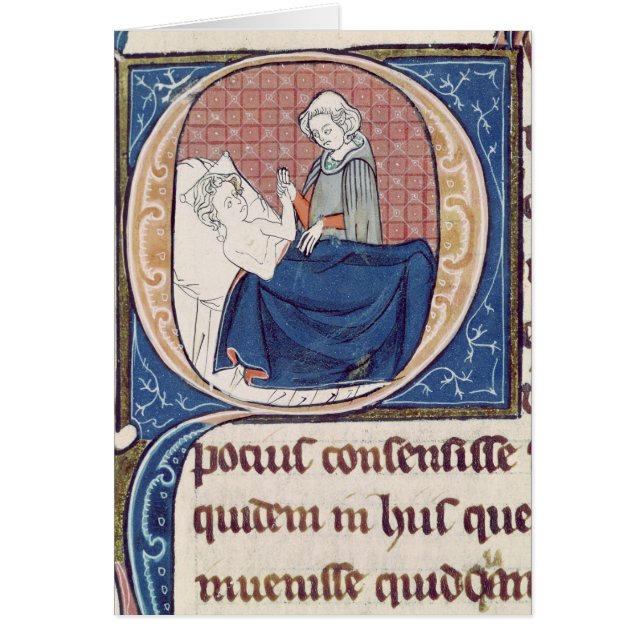 pocius consensisse
quidem in hiis que
inuenisse